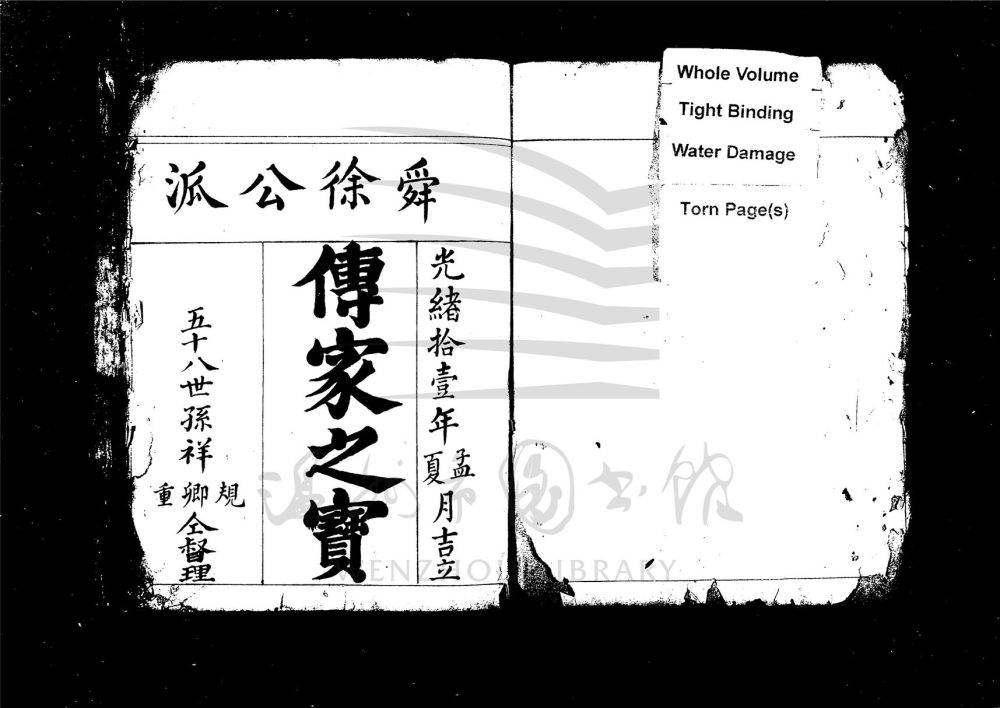 舜徐公派
光緒拾壹年孟夏月吉立
傳家之寶
五十八世孫祥規卿重仝督理
Whole Volume
Tight Binding
Water Damage
Torn Page(s)
溫州市圖書館
WENZHOU LIBRARY